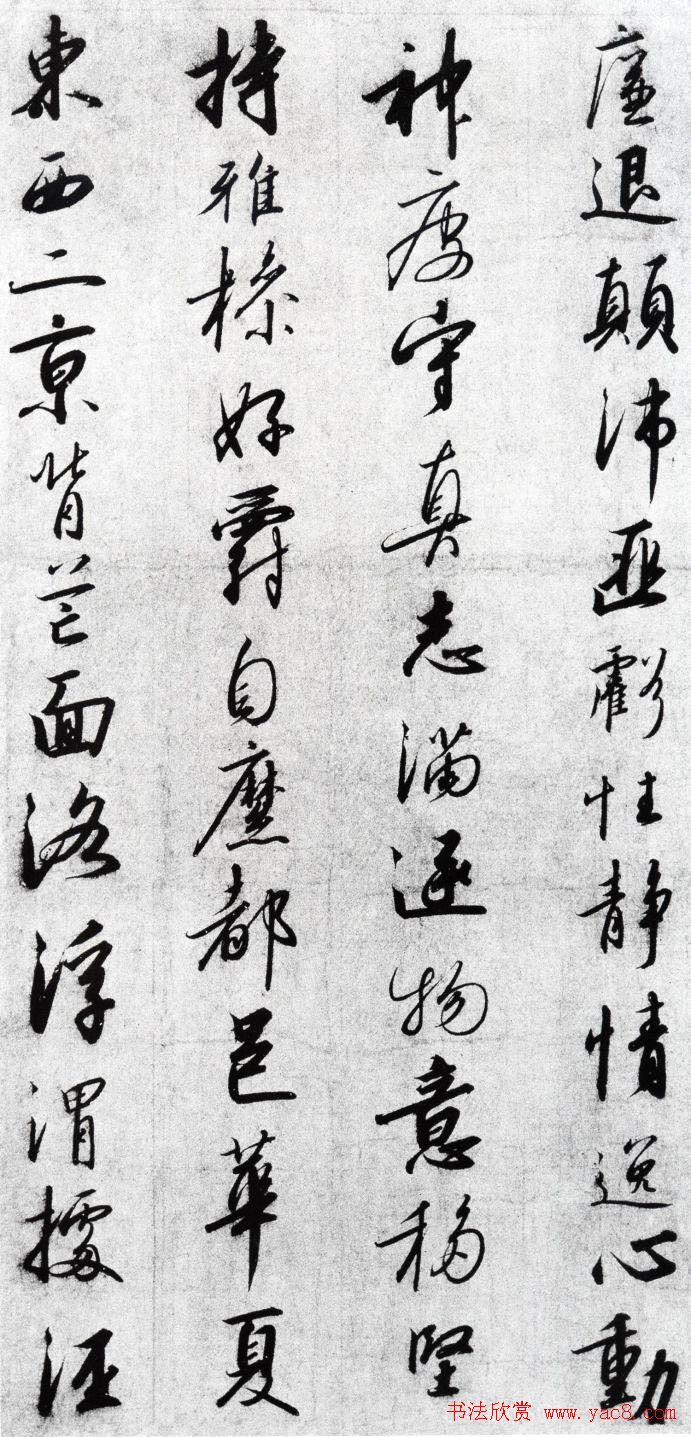 廉退顛沛匪虧性静情逸心動
神疲守真志滿逐物意移堅
持雅操好爵自縻都邑華夏
東西二京背芒面洛浮渭據涇
书法欣赏 www.yac8.com